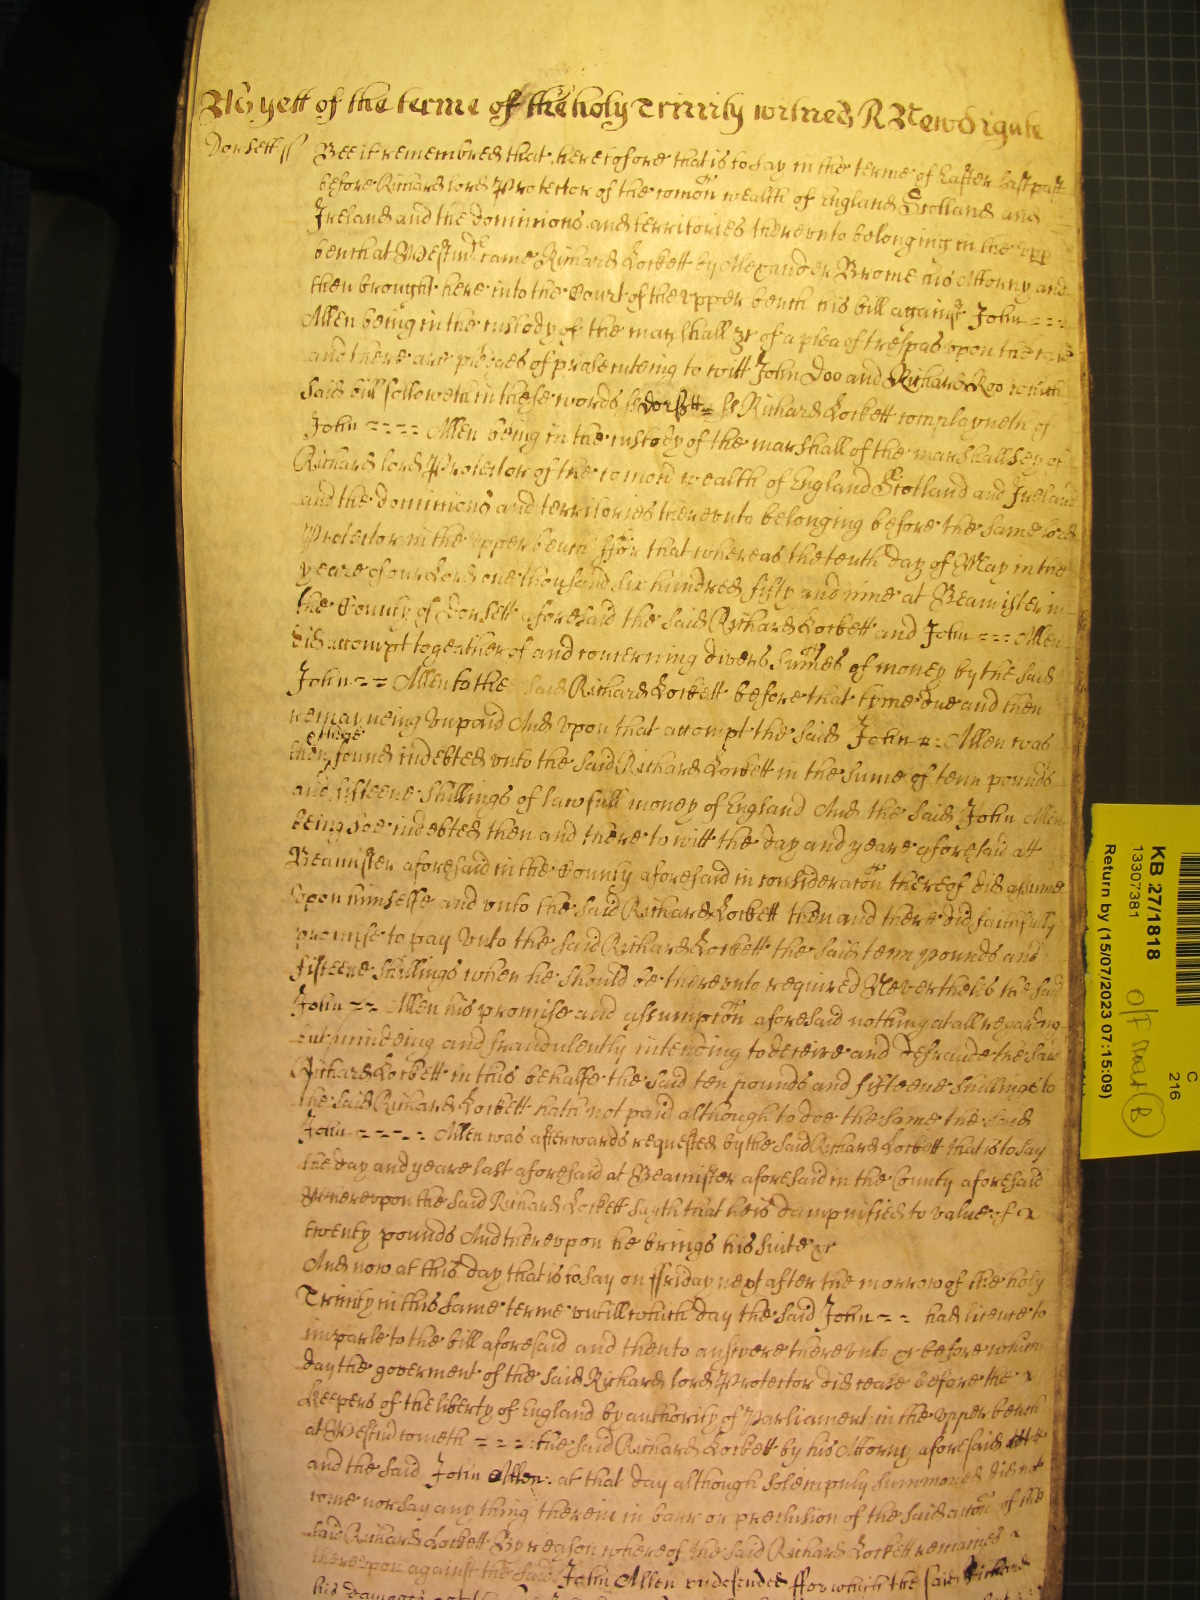 As yett of the terme of the holy Trinity witnes R Newdigate
Dorsett ss Bee it remembred that heretofore that is to say in the terme of Easter last past
before Richard lord Protector of the comon wealth of England Scotland and
Ireland and the dominions and territories therevnto belonging in the vpp
bench at Westmr came Richard Cockett by Alexander Brome his Attorny and
then brought here into the Court of the vpper bench his bill against John ===
Allen being in the custody of the marshall &c of a plea of trespas vpon the case
and there are pledges of prosecuteing to witt John Doo and Richard Roo which
said bill followeth in these words ss Dorsett = ss Richard Cockett complayneth of
John ==== Allen being in the custody of the marshall of the marshallsey of
Richard lord Protector of the comon wealth of England Scotland and Ireland
and the dominions and territories therevnto belonging before the same lord
Protector in the vpper bench ffor that whereas the tenth day of May in the
yeare of our Lord one thousand six hundred fifty and nine at Beamister in
the County of Dorsett aforesaid the said Richard Cockett and John === Allen
did accompt togeather of and concerning divers sumes of money by the said
John == Allen to the said Richard Cockett before that tyme due and then
remayneing vnpaid And vpon that accompt the said John = Allen was
then & there found indebted vnto the said Richard Cockett in the sume of tenn pounds
and fifteene shillings of lawfull money of England And the said John Allen
being soe indebted then and there to witt the day and yeare aforesaid att
Beamister aforesaid in the County aforesaid in consideracon thereof did assume
vpon himselfe and vnto the said Richard Cockett then and there did faithfully
promise to pay vnto the said Richard Cockett the said tenn pounds and
fifteene shillings when he should be therevnto required Neverthelss the said
John == Allen his promise and assumpcon aforesaid nothing at all regarding
but mindeing and fraudulently intending to deceive and defraude the said
Richard Cockett in this behalfe the said ten pounds and fifteene shillings to
the said Richard Cockett hath not paid although to doe the same the said
John ==== Allen was afterwards requested by the said Richard Cockett that is to say
the day and yeare last aforesaid at Beamister aforesaid in the County aforesaid
Wherevpon the said Richard Cockett sayth that he is dampnified to value of
twenty pounds And therevpon he brings his suite &c
And now at this day that is to say on ffriday next after the morrow of the holy
Trinity in this same terme vntill which day the said John == had licence to
imparle to the bill aforesaid and then to answere therevnto &c before which
day the goverment of the said Richard lord Protector did cease before the
Keepers of the liberty of England by authority of Parliament in the vpper bench
at Westmr cometh === the said Richard Cockett by his Attorny aforesaid
and the said John Allen at that day although solempnly summoned did not
come nor say any thing therein in barr or preclusion of the said accon of the
said Richard Cockett By reason whereof the said Richard Cockett remaines
therevpon against the said John Allen vndefended ffor which the said Richard
his damages
KB 27/1818
13307381
Return by (15/07/2023 07:15:09)
C
216